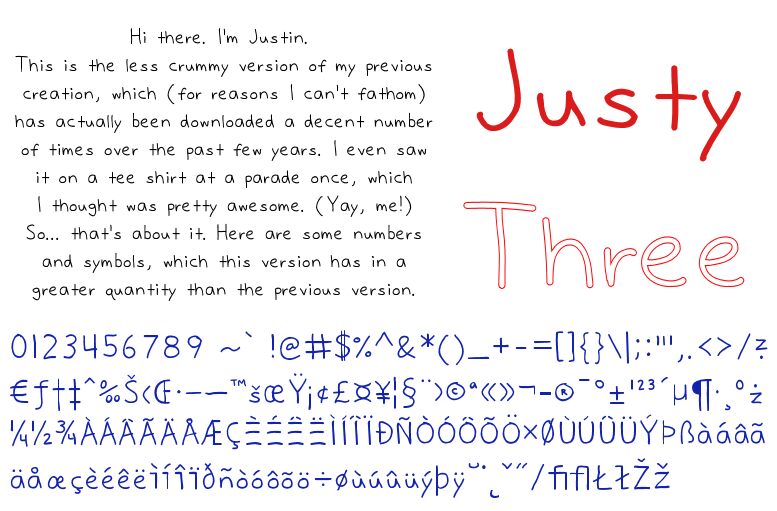 Hi there. I'm Justin.
This is the less crummy version of my previous
creation, which (for reasons I can't fathom)
has actually been downloaded a decent number
of times over the past few years. I even saw
it on a tee shirt at a parade once, which
I thought was pretty awesome. (Yay, me!)
So... that's about it. Here are some numbers
and symbols, which this version has in a
greater quantity than the previous version.
Justy
Three
0123456789 ~` !@#$%^&*()_+-=[]{}\|;:'",.<>/?
€ƒ†‡ˆ‰Š‹Œ·–—™šœŸ¡¢£¤¥¦§¨›©ª«»¬-®¯°±¹²³´µ¶·¸º¿
¼½¾ÀÁÂÃÄÅÆÇÈÉÊËÌÍÎÏÐÑÒÓÔÕÖרÙÚÛÜÝÞßàáâã
äåæçèéêëìíîïðñòóôõö÷øùúûüýþÿ˘˙˛ˇ˝⁄fiflŁłŽž